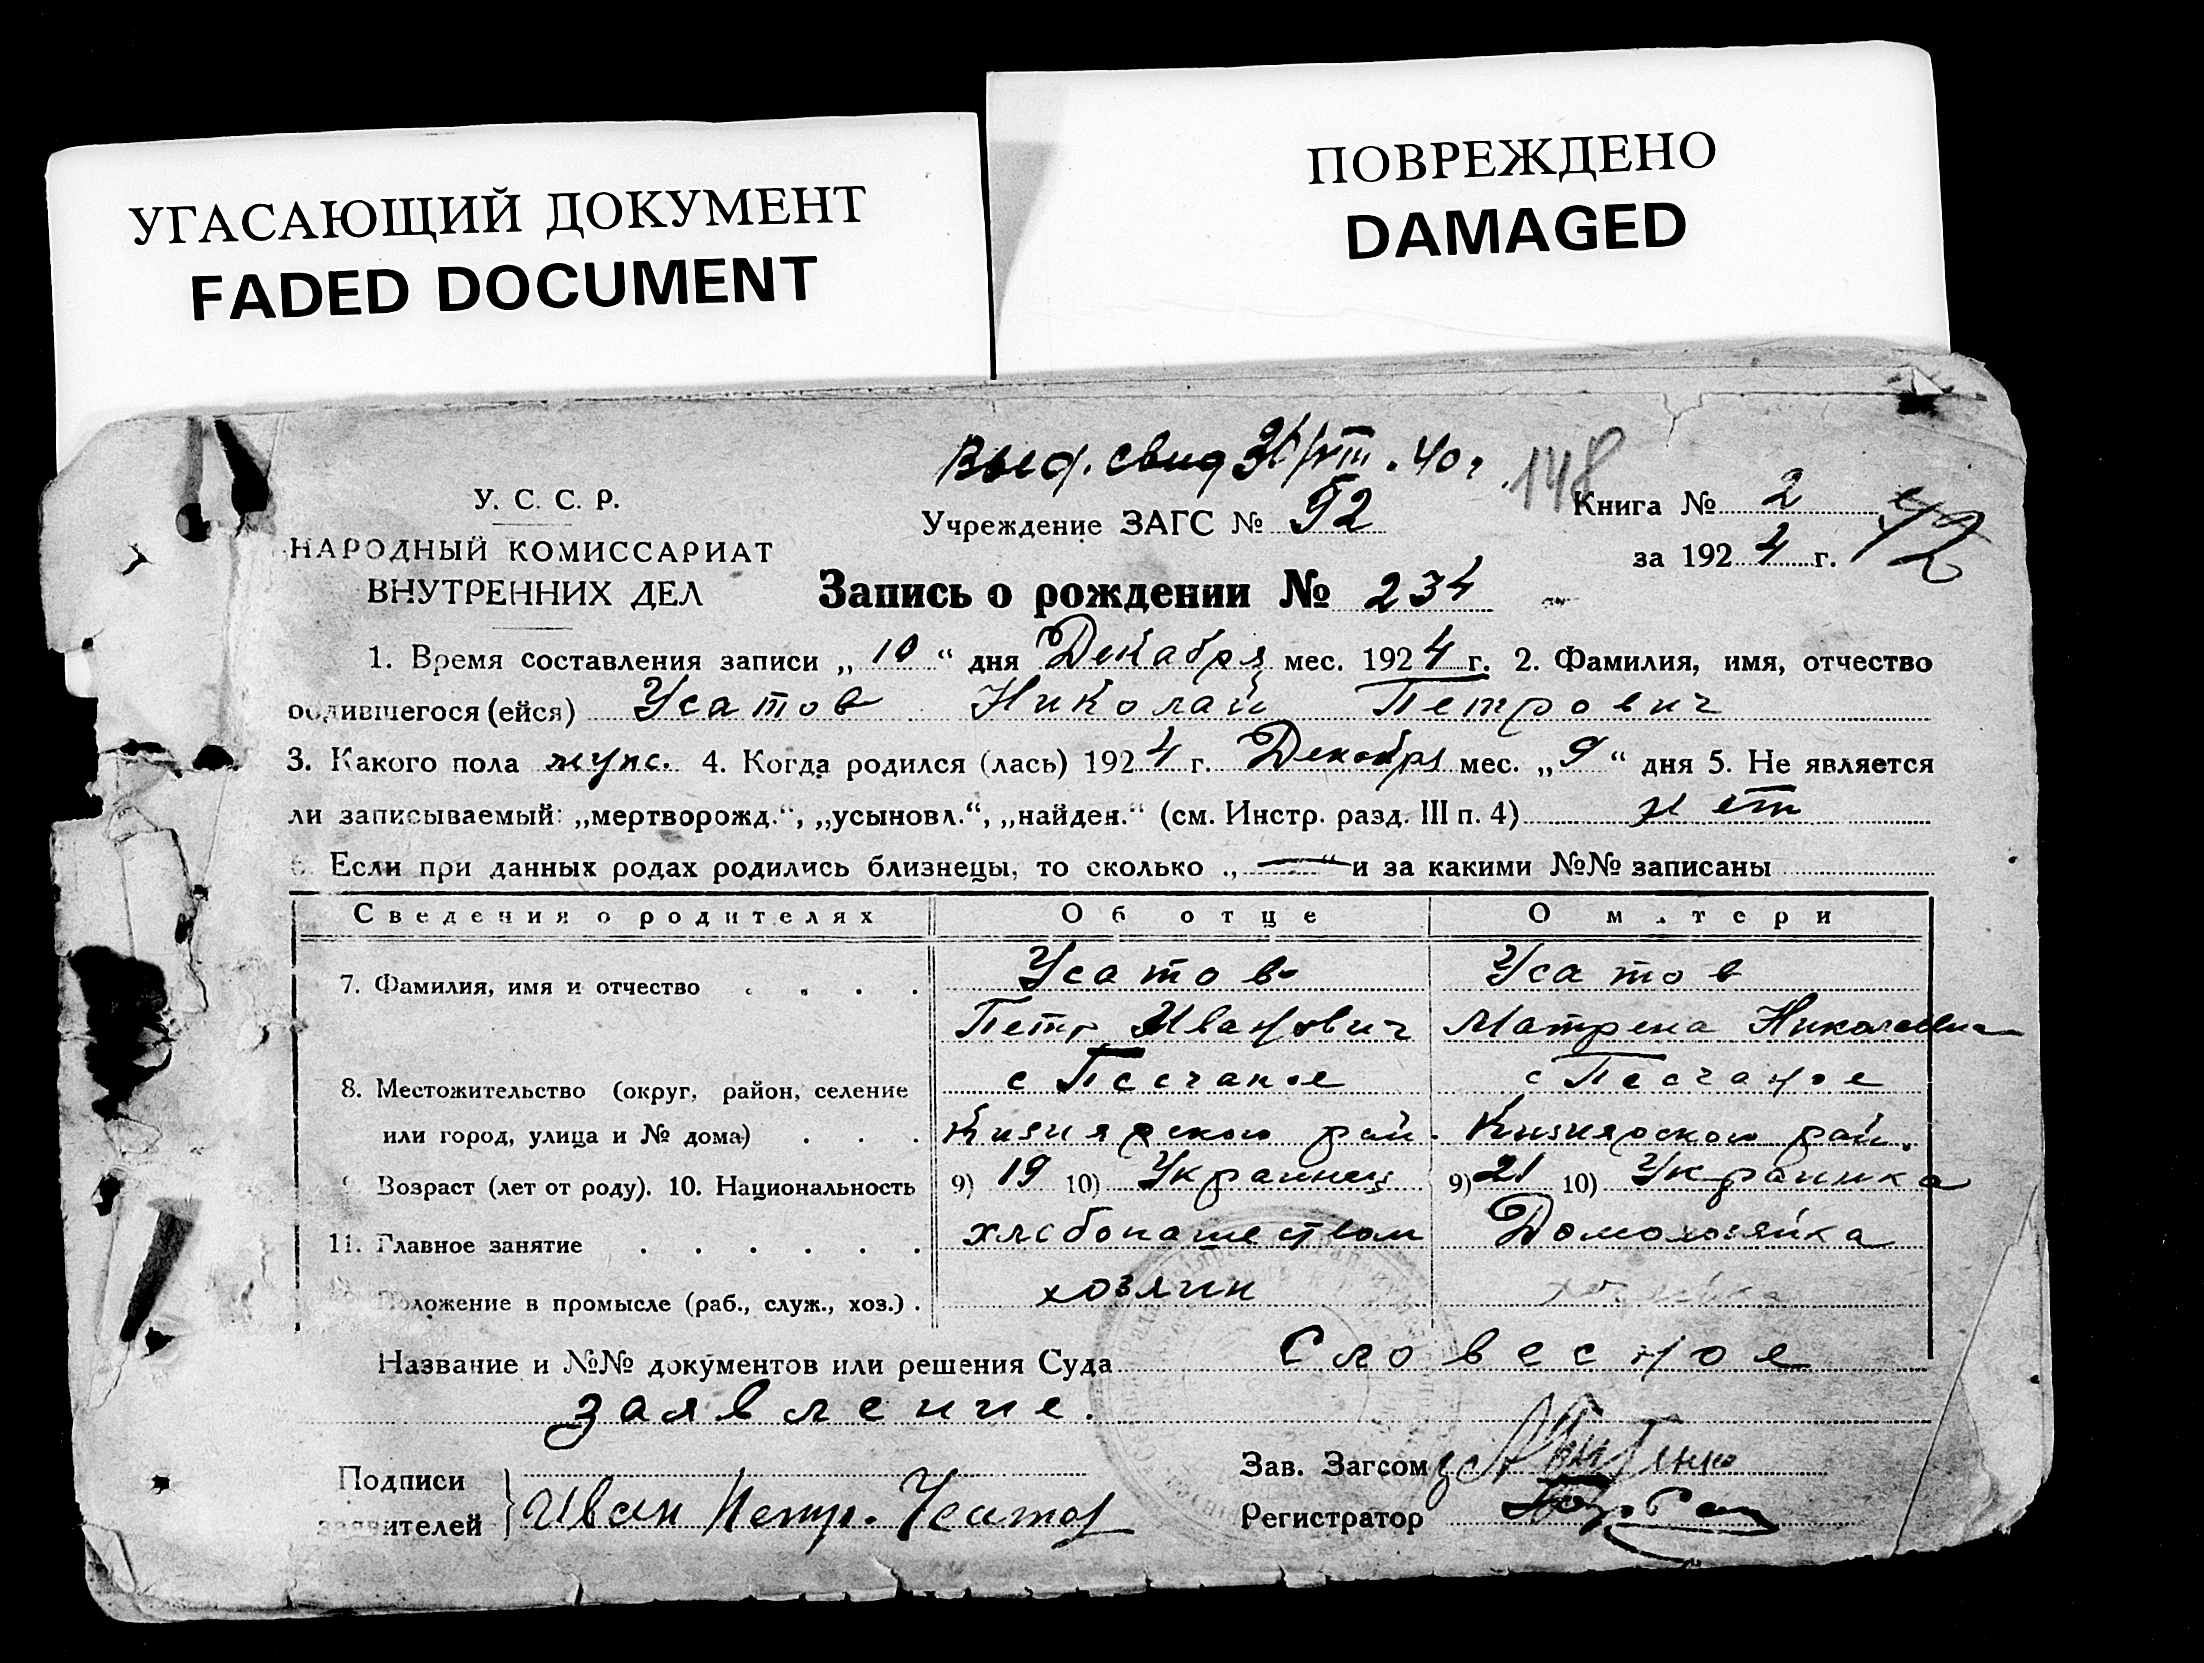 УГАСАЮЩИЙ ДОКУМЕНТ
FADED DOCUMENT
ПОВРЕЖДЕНО
DAMAGED
Выд. свид 31/VIII. 40 г. 148
У. С. С. Р.
НАРОДНЫЙ КОМИССАРИАТ
ВНУТРЕННИХ ДЕЛ
Учреждение ЗАГС №
Книга № 2
за 1924 г.
42
Запись о рождении № 234
1. Время составления записи „10“ дня Декабря мес. 1924 г. 2. Фамилия, имя, отчество
родившегося (ейся) Усатов Николай Петрович
3. Какого пола мужс. 4. Когда родился (лась) 1924 г. Декабря мес. „9“ дня 5. Не является
ли записываемый: „мертворожд.“, „усыновл.“, „найден.“ (см. Инстр. разд. III п. 4) нет
6. Если при данных родах родились близнецы, то сколько „—“ и за какими №№ записаны
Сведения о родителях Об отце О матери
7. Фамилия, имя и отчество . . . . Усатов Усатов
Петр Иванович Матрена Николаевна
8. Местожительство (округ, район, селение с Песчаное с Песчаное
или город, улица и № дома) . . . Кизиярского рай. Кизиярского рай.
9. Возраст (лет от роду). 10. Национальность 9) 19 10) Украинец 9) 21 10) Украинка
11. Главное занятие . . . . . . хлебопашеством Домохозяйка
Положение в промысле (раб., служ., хоз.) . хозяин
Название и №№ документов или решения Суда Словесное
заявление.
Подписи
заявителей } Иван Петр. Усатов
Зав. Загсом
Регистратор